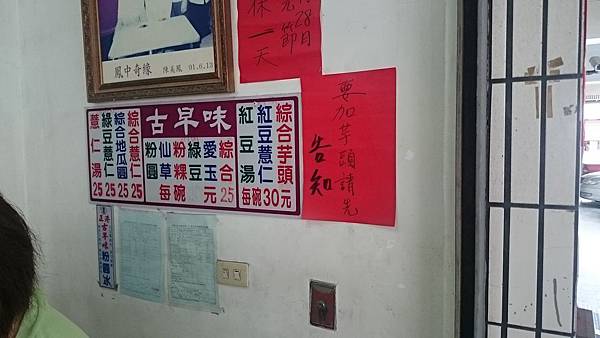 鳳中奇緣 陳美鳳 01.6.13
28日
元節
休一天
要加芋頭請先
告知
古早味
綜合芋頭
紅豆薏仁
紅豆湯
每碗30元
綜合 25
愛玉
綠豆
粉粿
仙草
粉圓
每碗 元
綜合薏仁 25
綜合地瓜圓 25
綠豆薏仁 25
薏仁湯 25
正港古早味粉圓冰